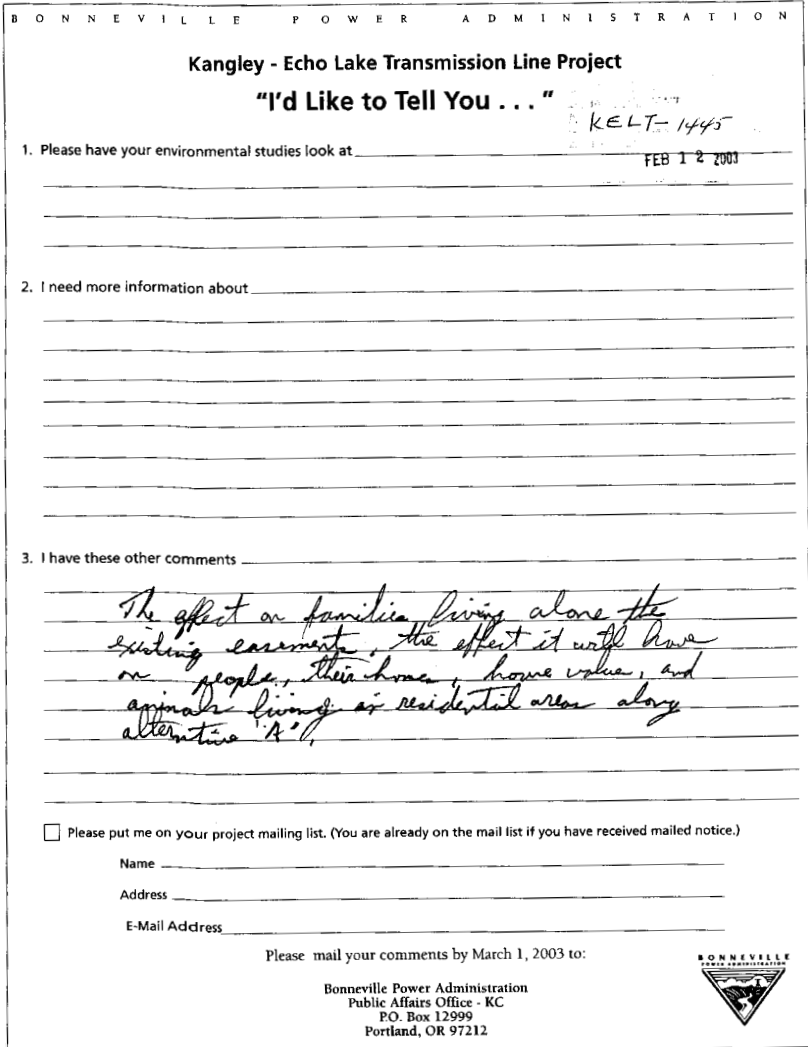 BONNEVILLE POWER ADMINISTRATION
Kangley - Echo Lake Transmission Line Project
"I'd Like to Tell You . . . "
KELT-1445
1. Please have your environmental studies look at
FEB 12 2003
2. I need more information about
3. I have these other comments
The effect on families living alone the
existing easements, the effect it will have
on people, their homes, home value, and
animals living in residential areas along
alterntive "A".
Please put me on your project mailing list. (You are already on the mail list if you have received mailed notice.)
Name
Address
E-Mail Address
Please mail your comments by March 1, 2003 to:
BONNEVILLE
POWER ADMINISTRATION
Bonneville Power Administration
Public Affairs Office - KC
P.O. Box 12999
Portland, OR 97212